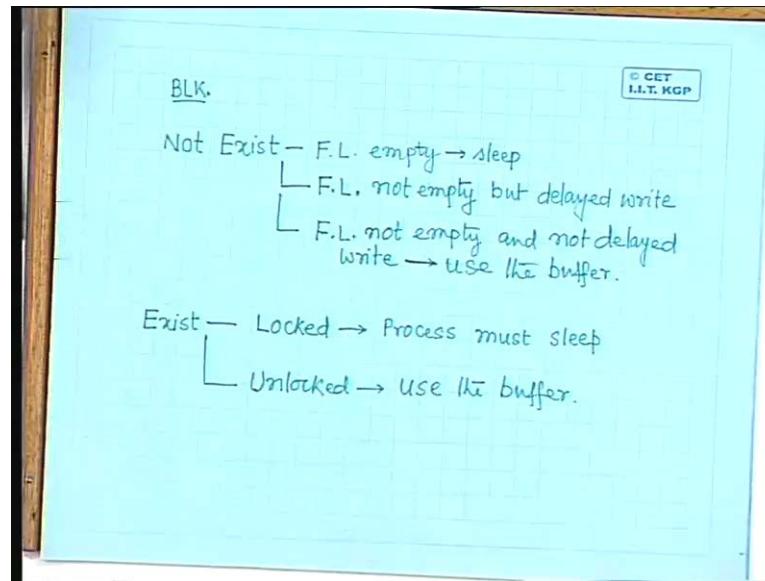 © CET
I.I.T. KGP
BLK.
Not Exist — F.L. empty → sleep
F.L. not empty but delayed write
F.L. not empty and not delayed
write → use the buffer.
Exist — Locked → Process must sleep
Unlocked → use the buffer.